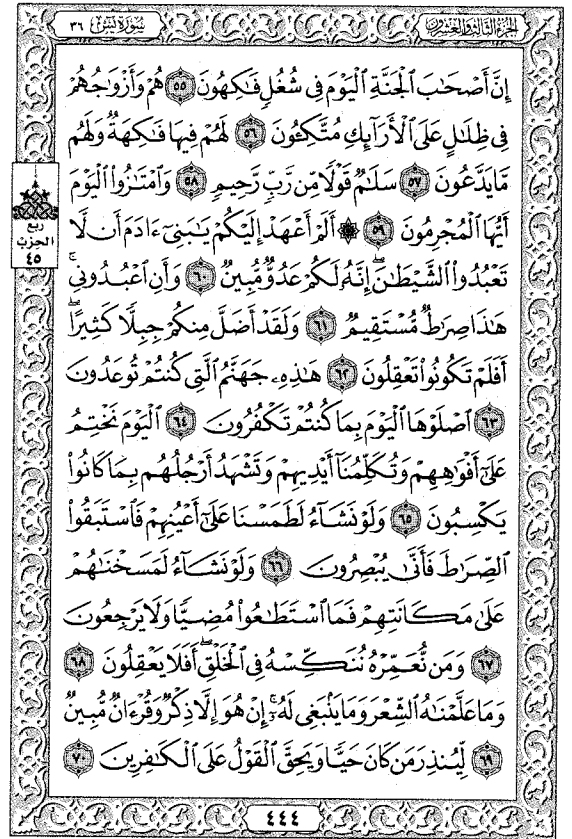 سُورَةُ يسٓ ٣٦
الجزء الثالث والعشرون
إِنَّ أَصْحَٰبَ ٱلْجَنَّةِ ٱلْيَوْمَ فِى شُغُلٍ فَٰكِهُونَ ٥٥ هُمْ وَأَزْوَٰجُهُمْ
فِى ظِلَٰلٍ عَلَى ٱلْأَرَآئِكِ مُتَّكِـُٔونَ ٥٦ لَهُمْ فِيهَا فَٰكِهَةٌ وَلَهُم
مَّا يَدَّعُونَ ٥٧ سَلَٰمٌ قَوْلًا مِّن رَّبٍّ رَّحِيمٍ ٥٨ وَٱمْتَٰزُوا۟ ٱلْيَوْمَ
أَيُّهَا ٱلْمُجْرِمُونَ ٥٩ ۞ أَلَمْ أَعْهَدْ إِلَيْكُمْ يَٰبَنِىٓ ءَادَمَ أَن لَّا
تَعْبُدُوا۟ ٱلشَّيْطَٰنَ ۖ إِنَّهُۥ لَكُمْ عَدُوٌّ مُّبِينٌ ٦٠ وَأَنِ ٱعْبُدُونِى ۚ
هَٰذَا صِرَٰطٌ مُّسْتَقِيمٌ ٦١ وَلَقَدْ أَضَلَّ مِنكُمْ جِبِلًّا كَثِيرًا ۖ
أَفَلَمْ تَكُونُوا۟ تَعْقِلُونَ ٦٢ هَٰذِهِۦ جَهَنَّمُ ٱلَّتِى كُنتُمْ تُوعَدُونَ
٦٣ ٱصْلَوْهَا ٱلْيَوْمَ بِمَا كُنتُمْ تَكْفُرُونَ ٦٤ ٱلْيَوْمَ نَخْتِمُ
عَلَىٰٓ أَفْوَٰهِهِمْ وَتُكَلِّمُنَآ أَيْدِيهِمْ وَتَشْهَدُ أَرْجُلُهُم بِمَا كَانُوا۟
يَكْسِبُونَ ٦٥ وَلَوْ نَشَآءُ لَطَمَسْنَا عَلَىٰٓ أَعْيُنِهِمْ فَٱسْتَبَقُوا۟
ٱلصِّرَٰطَ فَأَنَّىٰ يُبْصِرُونَ ٦٦ وَلَوْ نَشَآءُ لَمَسَخْنَٰهُمْ
عَلَىٰ مَكَانَتِهِمْ فَمَا ٱسْتَطَٰعُوا۟ مُضِيًّا وَلَا يَرْجِعُونَ
٦٧ وَمَن نُّعَمِّرْهُ نُنَكِّسْهُ فِى ٱلْخَلْقِ ۖ أَفَلَا يَعْقِلُونَ ٦٨
وَمَا عَلَّمْنَٰهُ ٱلشِّعْرَ وَمَا يَنۢبَغِى لَهُۥٓ ۚ إِنْ هُوَ إِلَّا ذِكْرٌ وَقُرْءَانٌ مُّبِينٌ
٦٩ لِّيُنذِرَ مَن كَانَ حَيًّا وَيَحِقَّ ٱلْقَوْلُ عَلَى ٱلْكَٰفِرِينَ ٧٠
ربع
الحزب
٤٥
٤٤٤